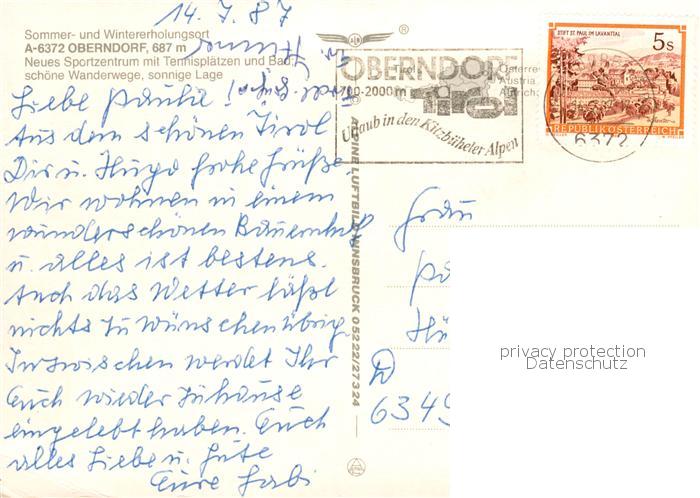 14.7.87
Sommer- und Wintererholungsort
A-6372 OBERNDORF, 687 m
Neues Sportzentrum mit Tennisplätzen und Bad,
schöne Wanderwege, sonnige Lage
Liebe Paula!
Aus dem schönen Tirol
Dir u. Hugo frohe Grüße.
Wir wohnen in einem
wunderschönen Bauernhof
u. alles ist bestens.
Auch das Wetter läßt
nichts zu wünschen übrig.
Inzwischen werdet Ihr
Euch wieder zuhause
eingelebt haben. Euch
alles Liebe u. Gute
Eure Gabi
ALPINE LUFTBILD INNSBRUCK 05222/27324
OBERNDORF
Tirol
700-2000 m
Tirol
Urlaub in den Kitzbüheler Alpen
STIFT ST. PAUL IM LAVANTTAL
5 S
REPUBLIK ÖSTERREICH
6372
Frau
Pa
D
6349
privacy protection
Datenschutz